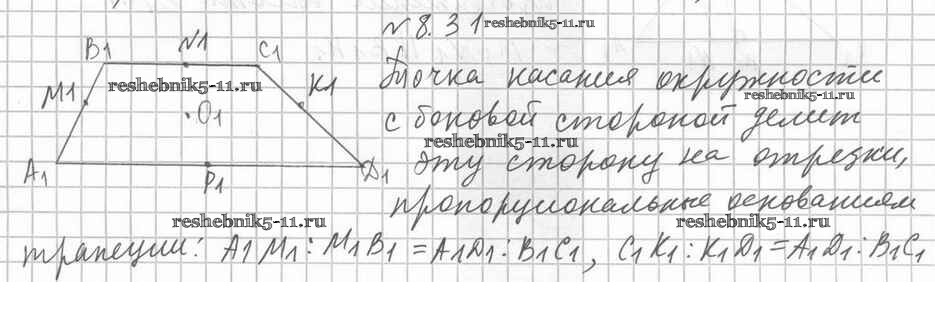 № 8.31
reshebnik5-11.ru
B1 N1 C1
M1 K1
reshebnik5-11.ru
O1
A1 P1 D1
Точка касания окружности
reshebnik5-11.ru
с боковой стороной делит
reshebnik5-11.ru
эту сторону на отрезки,
пропорциональные основаниям
reshebnik5-11.ru
reshebnik5-11.ru
трапеции: A1M1 : M1B1 = A1D1 : B1C1, C1K1 : K1D1 = A1D1 : B1C1